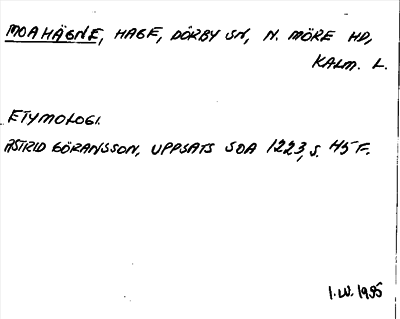 MOAHÄGNE, HAGE, DÖRBY SN, N. MÖRE HD,
KALM. L.
ETYMOLOGI.
ASTRID GÖRANSSON, UPPSATS SOA 1223, S. 45 F.
1995